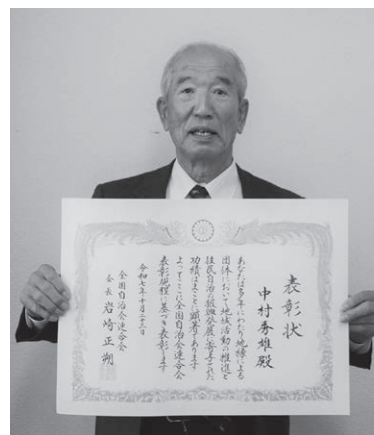 表彰状
中村秀雄殿
あなたは多年にわたり地縁による
団体において地域活動の推進と
住民自治の振興発展に寄与された
功績はまことに顕著であります
よってここに全国自治会連合会
表彰規程に基づき表彰します
令和七年十月二十三日
全国自治会連合会
会長 岩崎正朔